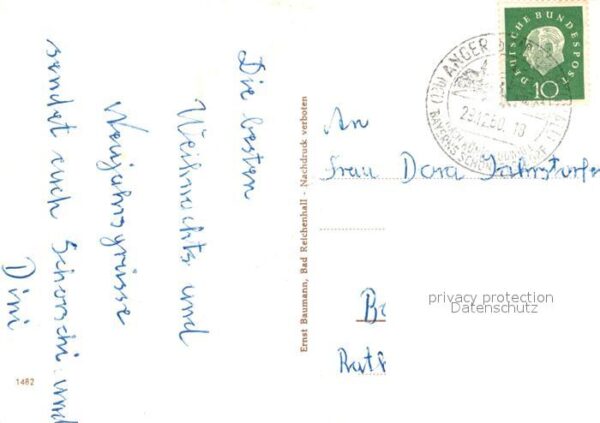 Die besten
Weihnachts und
Neujahrsgrüsse
sendet euch Schorschi und
Dini
1482
Ernst Baumann, Bad Reichenhall - Nachdruck verboten
DEUTSCHE BUNDESPOST
10
(13b) ANGER
BAYERNS SCHÖNSTES
An
Frau Dora
privacy protection
Datenschutz